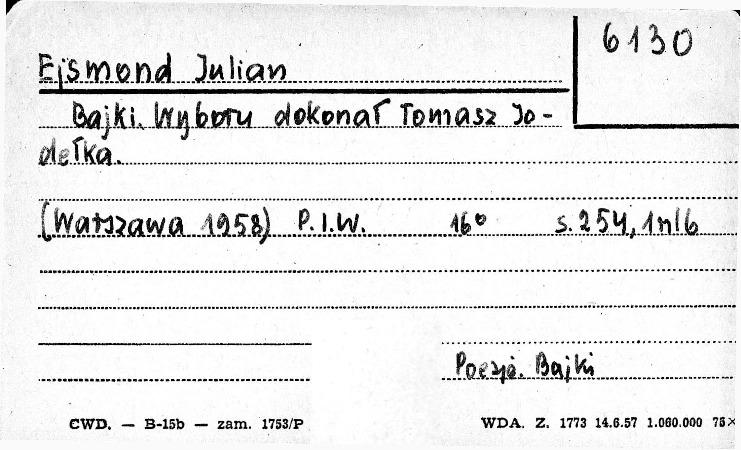 6130
Ejsmond Julian
Bajki. Wyboru dokonał Tomasz Jo-
dełka.
(Warszawa 1958) P.I.W. 16° s. 254, 1nlb
Poezja. Bajki
CWD. — B-15b — zam. 1753/P
WDA. Z. 1773 14.6.57 1.060.000 75×